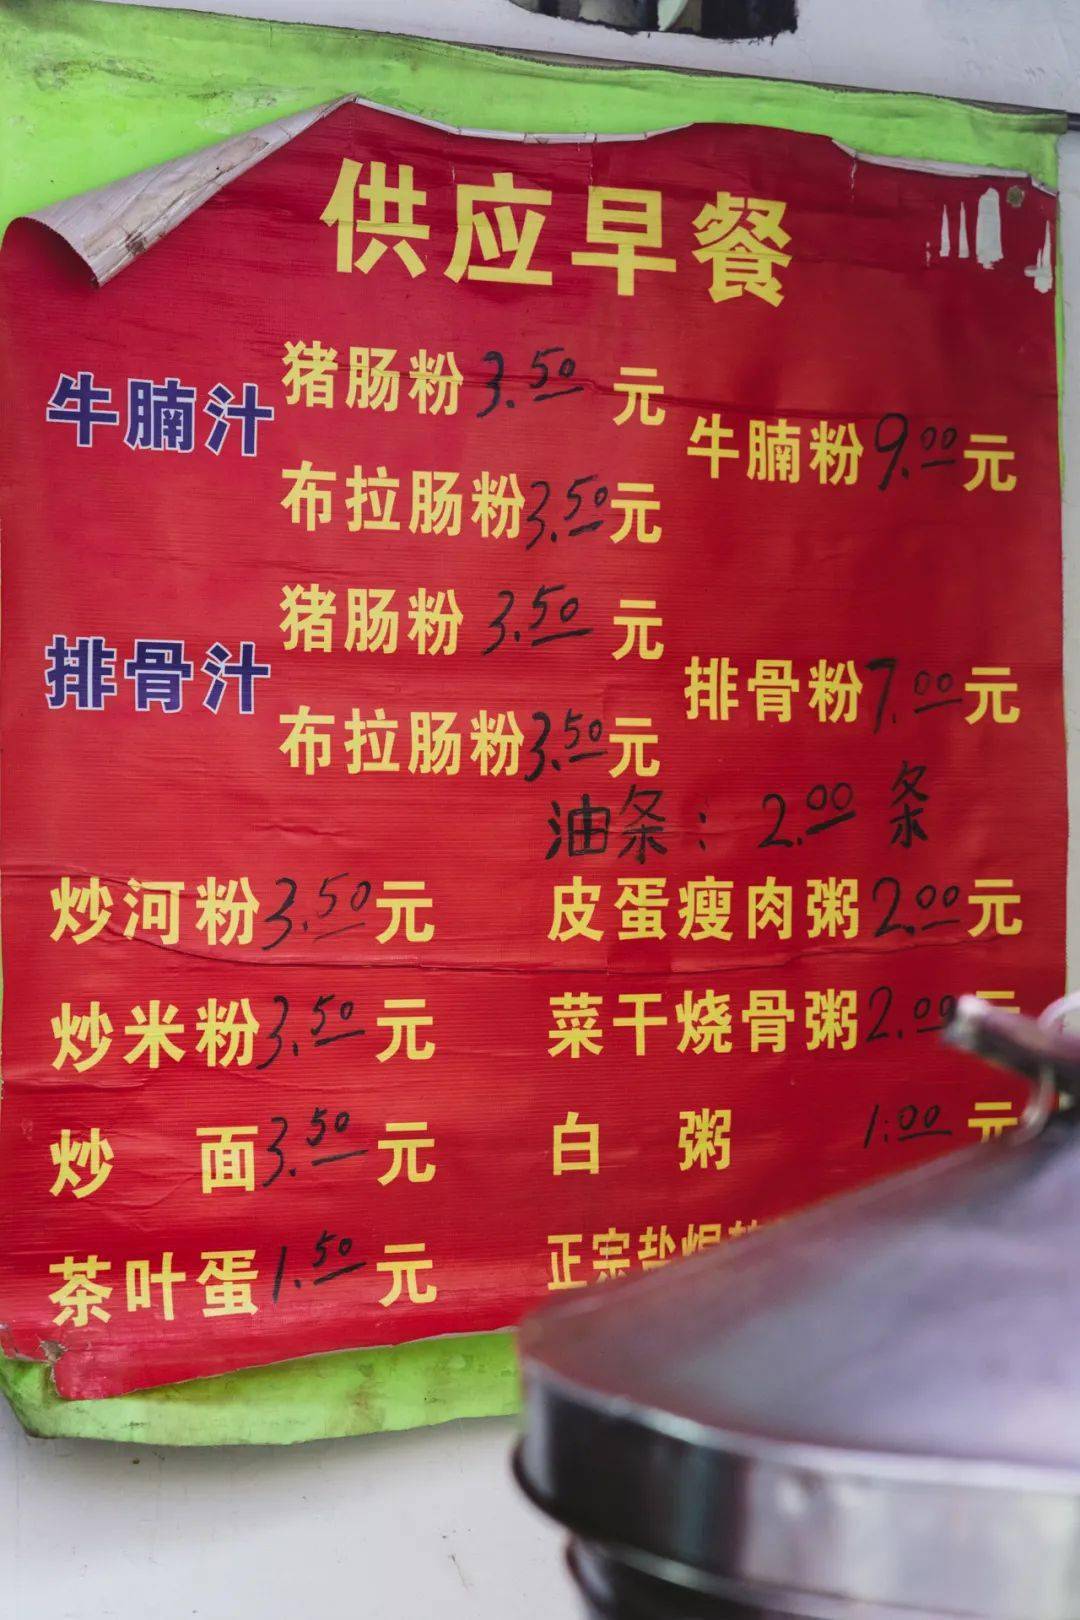 供应早餐
牛腩汁
猪肠粉 3.50 元
布拉肠粉 3.50 元
牛腩粉 9.00 元
排骨汁
猪肠粉 3.50 元
布拉肠粉 3.50 元
排骨粉 7.00 元
油条：2.00 条
炒河粉 3.50 元
皮蛋瘦肉粥 2.00 元
炒米粉 3.50 元
菜干烧骨粥 2.00 元
炒 面 3.50 元
白 粥 1.00 元
茶叶蛋 1.50 元
正宗盐焗